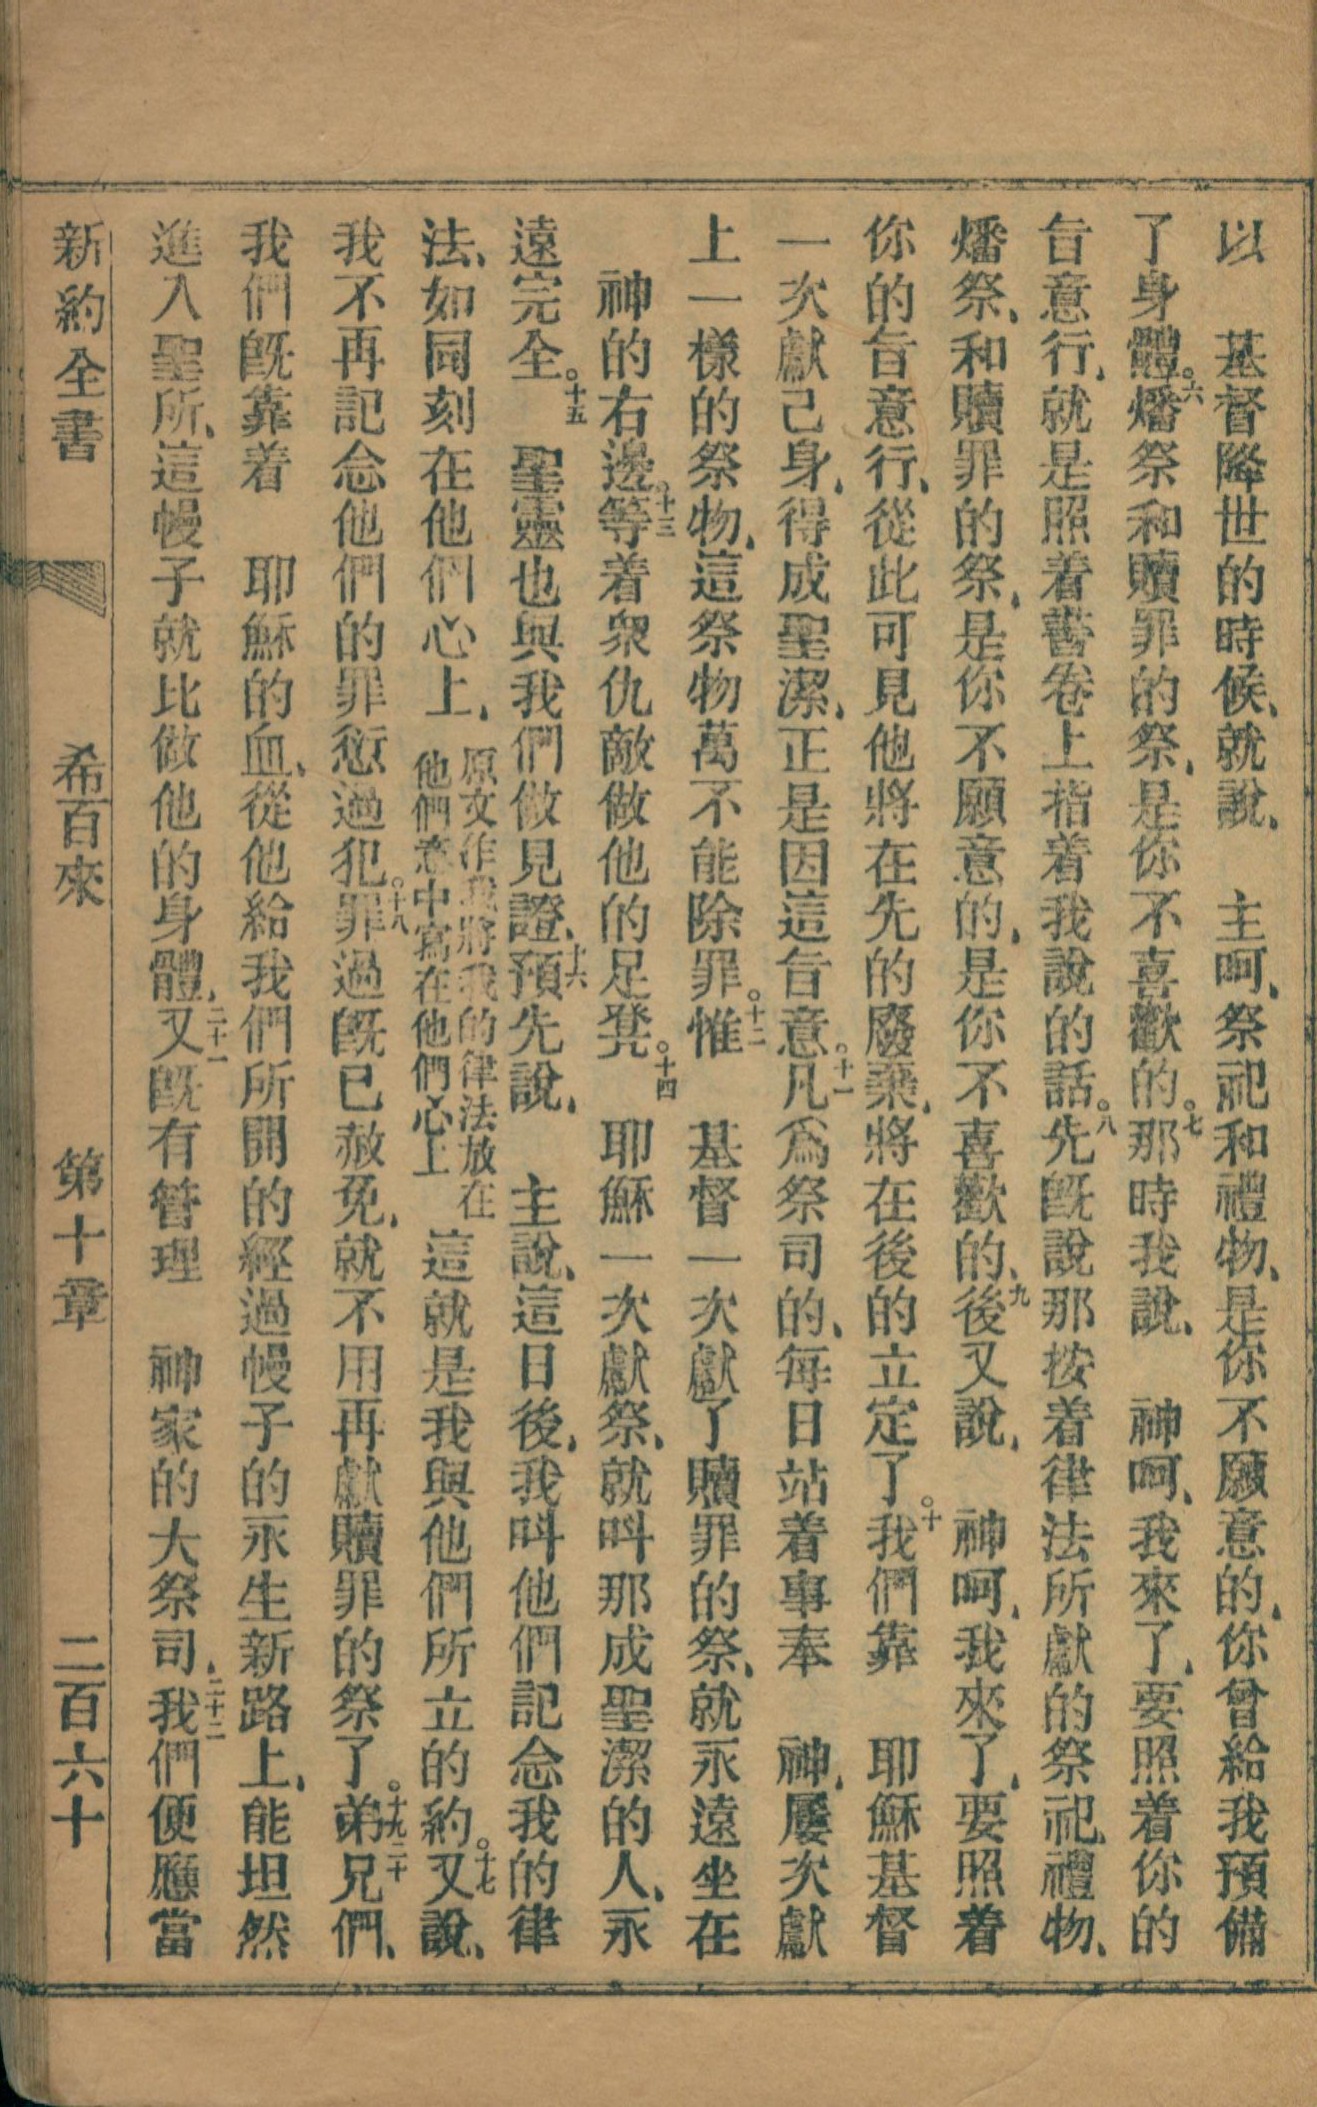 以　基督降世的時候、就說、　主呵、祭祀和禮物、是你不願意的、你曾給我預備
了身體。六燔祭和贖罪的祭、是你不喜歡的。七那時我說、　神呵、我來了、要照着你的
旨意行、就是照着書卷上指着我說的話。八先旣說那按着律法所獻的祭祀、禮物、
燔祭、和贖罪的祭、是你不願意的、是你不喜歡的、九後又說、　神呵、我來了、要照着
你的旨意行、從此可見他將在先的廢棄、將在後的立定了。十我們靠　耶穌基督
一次獻己身、得成聖潔、正是因這旨意。十一凡爲祭司的、每日站着事奉　神、屢次獻
上一樣的祭物、這祭物萬不能除罪。十二惟　基督一次獻了贖罪的祭、就永遠坐在
　神的右邊。十三等着衆仇敵做他的足凳。十四　耶穌一次獻祭、就叫那成聖潔的人、永
遠完全。十五　聖靈也與我們做見證、十六預先說、　主說、這日後、我叫他們記念我的律
法、如同刻在他們心上、原文作我將我的律法放在他們意中寫在他們心上這就是我與他們所立的約。十七又說、
我不再記念他們的罪愆過犯。十八罪過旣已赦免、就不用再獻贖罪的祭了。十九二十弟兄們、
我們旣靠着　耶穌的血、從他給我們所開的經過幔子的永生新路上、能坦然
進入聖所、這幔子就比做他的身體、二十一又旣有管理　神家的大祭司、二十二我們便應當
新約全書　希百來　第十章　二百六十